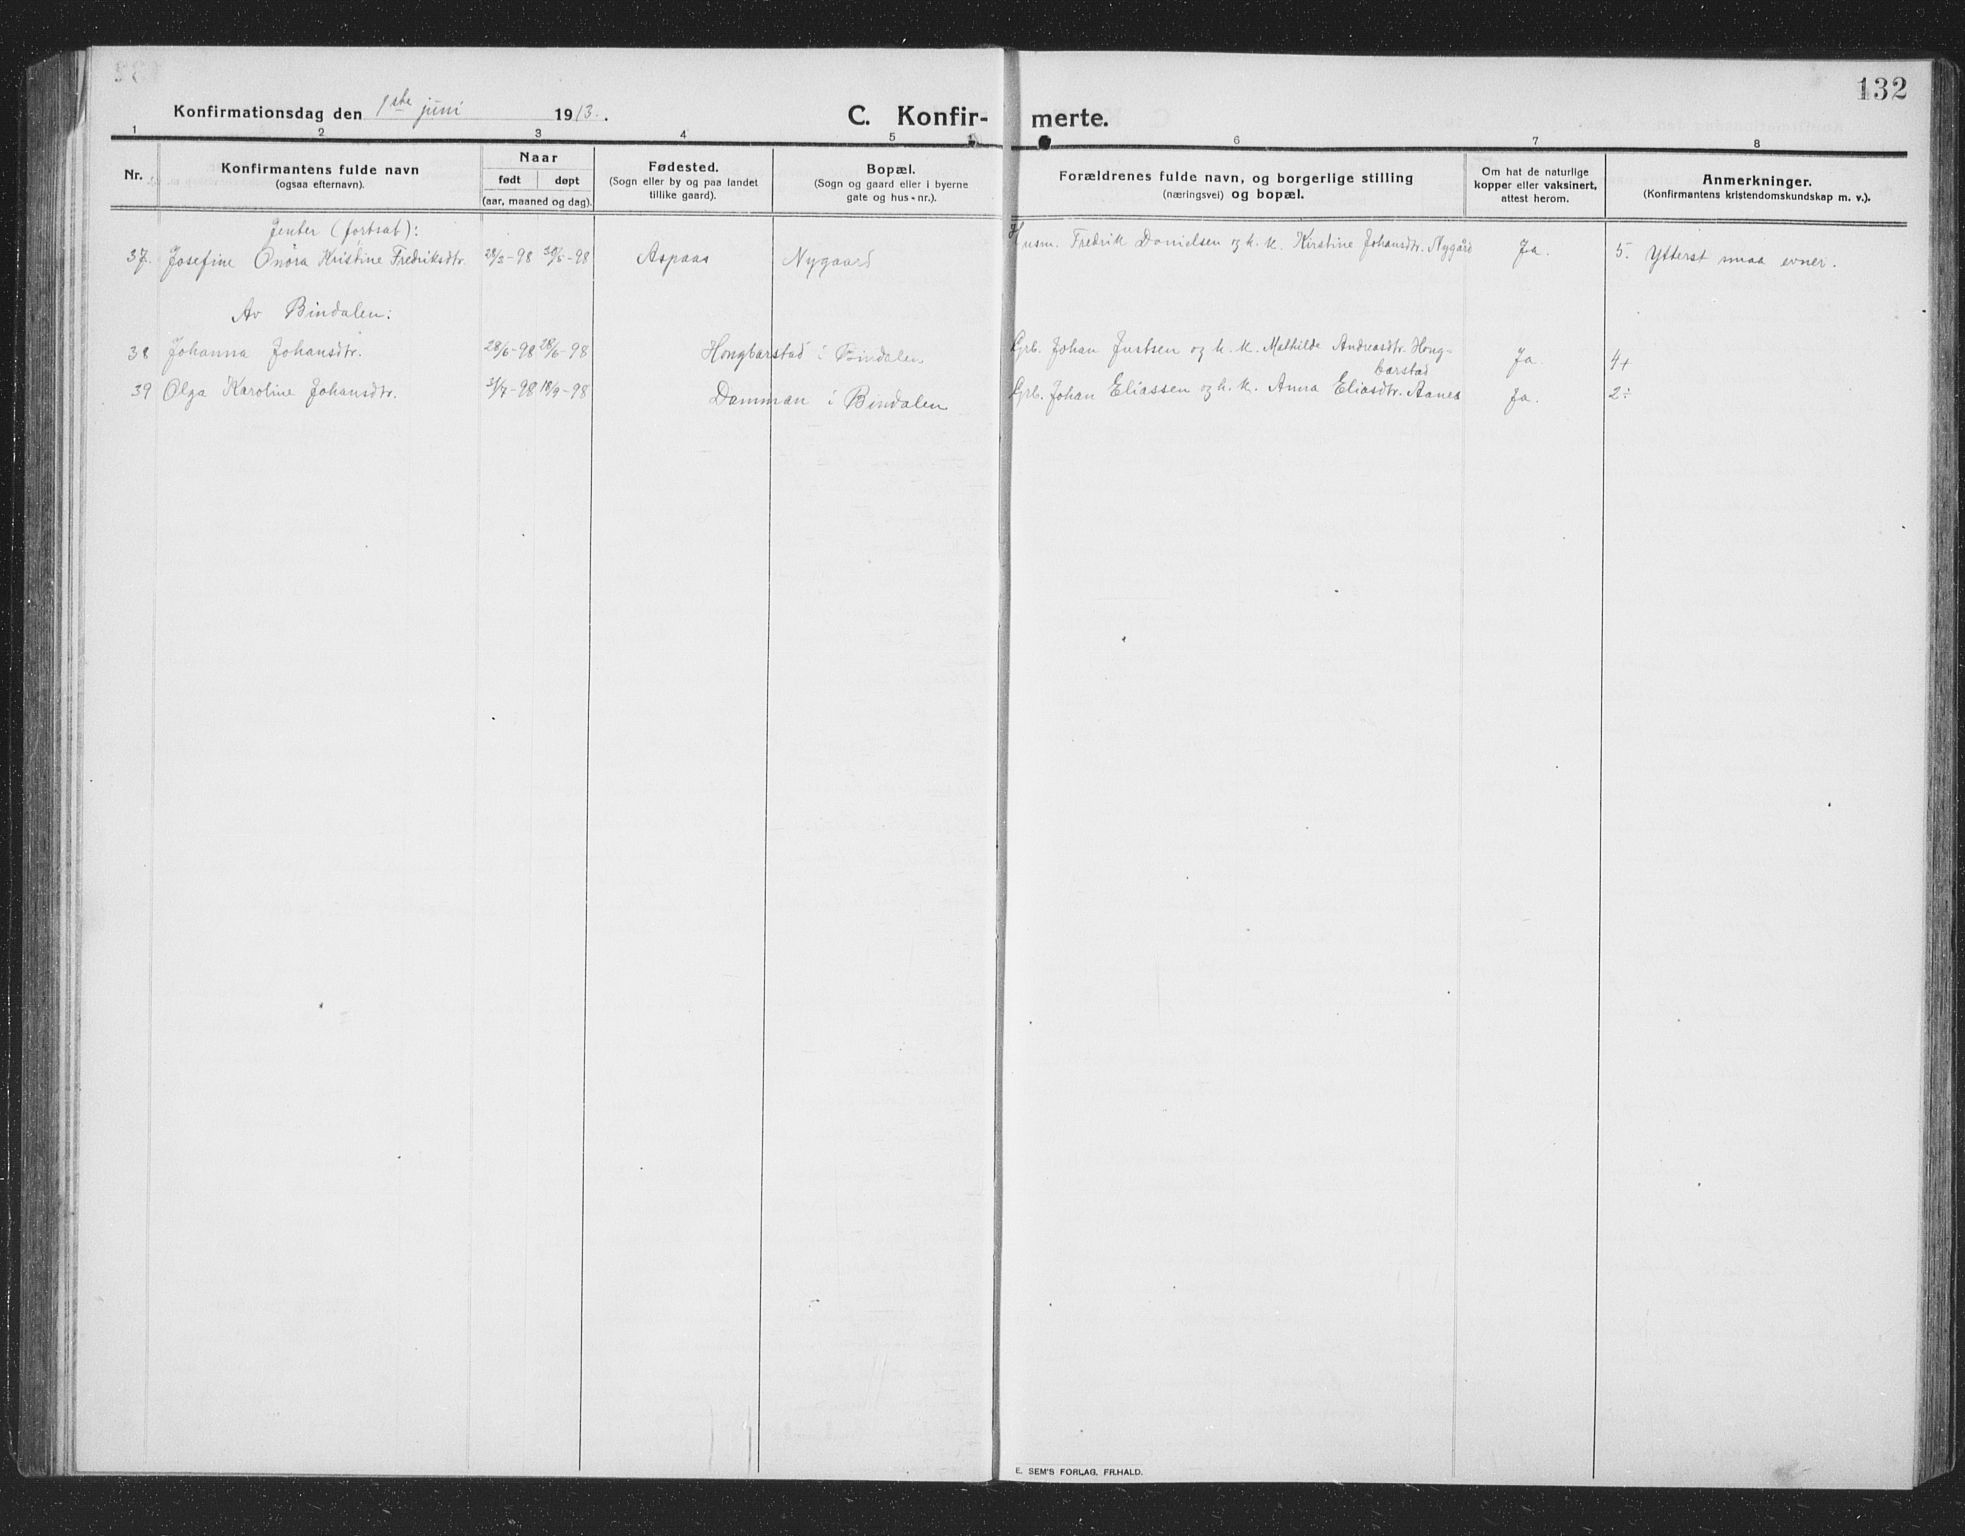 132
Konfirmationsdag den 1ste juni 1913.
C. Konfir- merte.
1 2 3 4 5 6 7 8
Nr.
Konfirmantens fulde navn
(ogsaa efternavn).
Naar
født døpt
(aar, maaned og dag).
Fødested.
(Sogn eller by og paa landet
tillike gaard).
Bopæl.
(Sogn og gaard eller i byerne
gate og hus-nr.).
Forældrenes fulde navn, og borgerlige stilling
(næringsvei) og bopæl.
Om hat de naturlige
kopper eller vaksinert,
attest herom.
Anmerkninger.
(Konfirmantens kristendomskundskap m. v.).
Jenter (fortsat):
37. Josefine Onöra Kristine Fredriksdtr. 28/3-98 30/5-98 Aspaas Nygaard Husm. Fredrik Danielsen og h. k. Kirstine Johansdtr. Nygård Ja. 5. Ytterst smaa evner.
Av Bindalen:
38 Johanna Johansdtr. 28/6-98 28/6-98 Hongbarstad i Bindalen Grb. Johan Justsen og h. k. Mathilde Andreasdtr. Hong-
barstad Ja. 4+
39 Olga Karoline Johansdtr. 31/7-98 18/9-98 Damman i Bindalen Grb. Johan Eliassen og h. k. Anna Eliasdtr. Aanes Ja. 2÷
E. SEM'S FORLAG, FR.HALD.